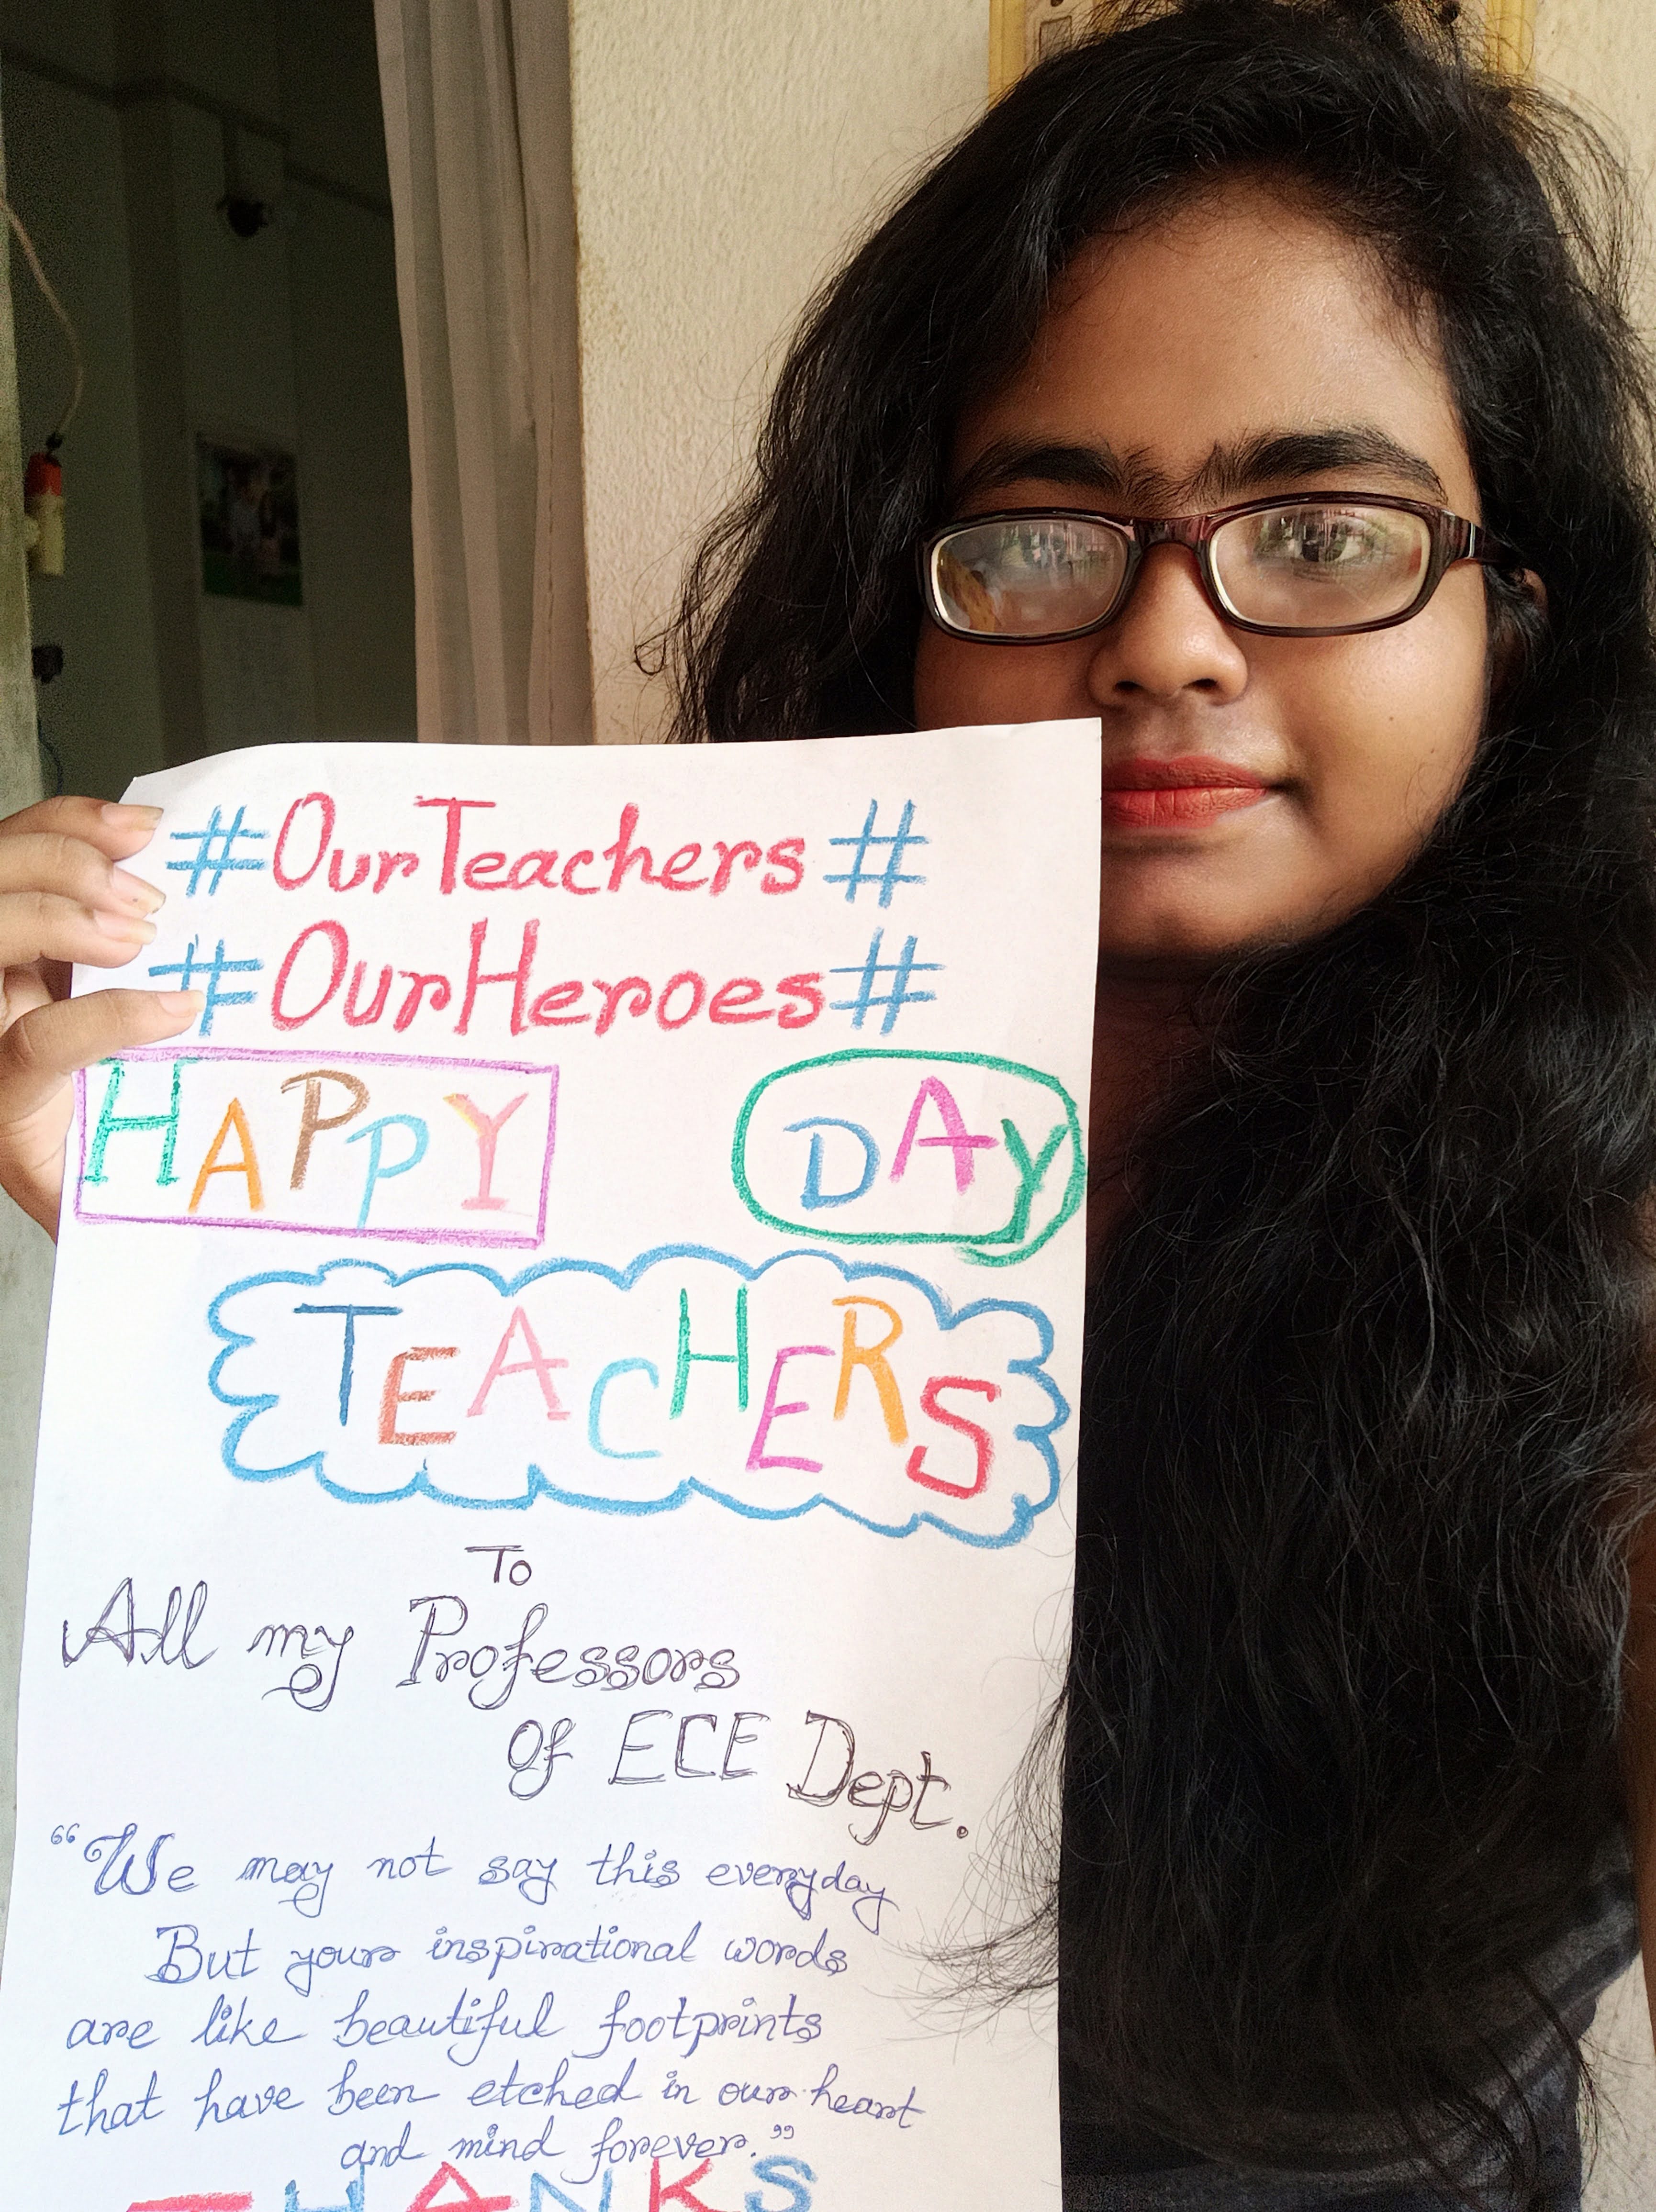 #OurTeachers#
#OurHeroes#
HAPPY DAY
TEACHERS
To
All my Professors
Of ECE Dept.
“We may not say this everyday
But your inspirational words
are like beautiful footprints
that have been etched in our heart
and mind forever.”
THANKS